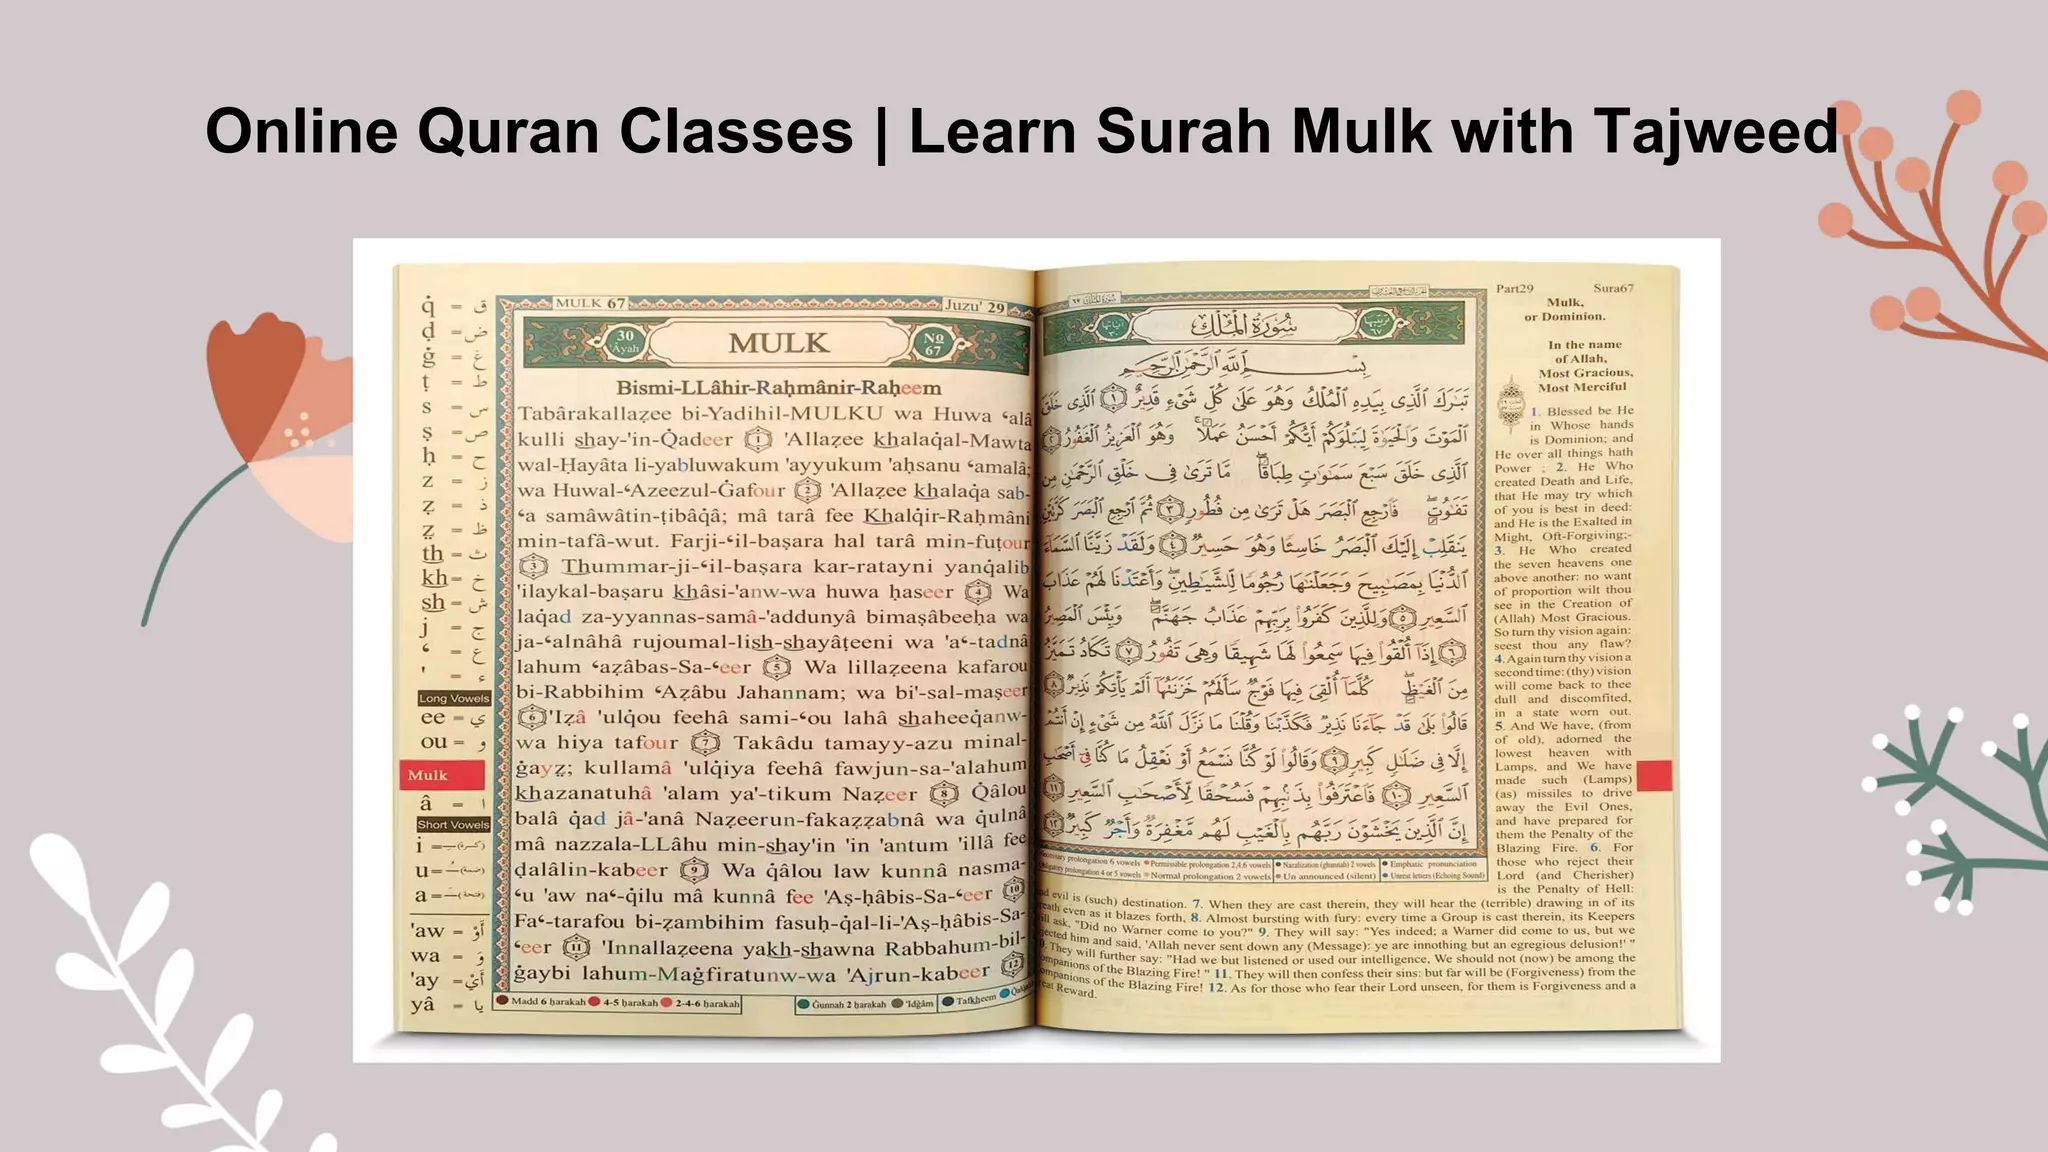 Online Quran Classes | Learn Surah Mulk with Tajweed
q̇ = ق
ḍ = ض
ġ = غ
ṭ = ط
s = س
ṣ = ص
ḥ = ح
z = ز
ẓ = ذ
ẓ̣ = ظ
th = ث
kh = خ
sh = ش
j = ج
ʻ = ع
' = ء
Long Vowels
ee = ي
ou = و
Mulk
â = ا
Short Vowels
i = (كسرة)
u = (ضمة)
a = (فتحة)
'aw = أَوْ
wa = وَ
'ay = أَيْ
yâ = يا
MULK 67 Juzu' 29
30 'Ayah MULK No 67
Bismi-LLâhir-Raḥmânir-Raḥeem
Tabârakallaẓee bi-Yadihil-MULKU wa Huwa ʻalâ
kulli shay-'in-Q̇adeer 1 'Allaẓee khalaq̇al-Mawta
wal-Ḥayâta li-yabluwakum 'ayyukum 'aḥsanu ʻamalâ;
wa Huwal-ʻAzeezul-Ġafour 2 'Allaẓee khalaq̇a sab-
ʻa samâwâtin-ṭibâq̇â; mâ tarâ fee Khalq̇ir-Raḥmâni
min-tafâ-wut. Farji-ʻil-baṣara hal tarâ min-fuṭour
3 Thummar-ji-ʻil-baṣara kar-ratayni yanq̇alib
'ilaykal-baṣaru khâsi-'anw-wa huwa ḥaseer 4 Wa
laq̇ad za-yyannas-samâ-'addunyâ bimaṣâbeeḥa wa
ja-ʻalnâhâ rujoumal-lish-shayâṭeeni wa 'aʻ-tadnâ
lahum ʻaẓâbas-Sa-ʻeer 5 Wa lillaẓeena kafarou
bi-Rabbihim ʻAẓâbu Jahannam; wa bi'-sal-maṣeer
6 'Iẓâ 'ulq̇ou feehâ sami-ʻou lahâ shaheeq̇anw-
wa hiya tafour 7 Takâdu tamayy-azu minal-
ġayẓ̣; kullamâ 'ulq̇iya feehâ fawjun-sa-'alahum
khazanatuhâ 'alam ya'-tikum Naẓeer 8 Q̇âlou
balâ q̇ad jâ-'anâ Naẓeerun-fakaẓẓabnâ wa q̇ulnâ
mâ nazzala-LLâhu min-shay'in 'in 'antum 'illâ fee
ḍalâlin-kabeer 9 Wa q̇âlou law kunnâ nasma-
ʻu 'aw naʻ-q̇ilu mâ kunnâ fee 'Aṣ-ḥâbis-Sa-ʻeer 10
Faʻ-tarafou bi-ẓambihim fasuḥ-q̇al-li-'Aṣ-ḥâbis-Sa-
ʻeer 11 'Innallaẓeena yakh-shawna Rabbahum-bil-
ġaybi lahum-Maġfiratunw-wa 'Ajrun-kabeer 12
Madd 6 ḥarakah 4-5 ḥarakah 2-4-6 ḥarakah Ġunnah 2 ḥarakah 'Idġâm Tafkheem
سُورَةُ الْمُلْكِ
بِسْمِ اللَّهِ الرَّحْمَٰنِ الرَّحِيمِ
تَبَٰرَكَ ٱلَّذِى بِيَدِهِ ٱلْمُلْكُ وَهُوَ عَلَىٰ كُلِّ شَىْءٍ قَدِيرٌ ١ ٱلَّذِى خَلَقَ
ٱلْمَوْتَ وَٱلْحَيَوٰةَ لِيَبْلُوَكُمْ أَيُّكُمْ أَحْسَنُ عَمَلًا ۚ وَهُوَ ٱلْعَزِيزُ ٱلْغَفُورُ ٢
ٱلَّذِى خَلَقَ سَبْعَ سَمَٰوَٰتٍ طِبَاقًا ۖ مَّا تَرَىٰ فِى خَلْقِ ٱلرَّحْمَٰنِ مِن
تَفَٰوُتٍ ۖ فَٱرْجِعِ ٱلْبَصَرَ هَلْ تَرَىٰ مِن فُطُورٍ ٣ ثُمَّ ٱرْجِعِ ٱلْبَصَرَ كَرَّتَيْنِ
يَنقَلِبْ إِلَيْكَ ٱلْبَصَرُ خَاسِئًا وَهُوَ حَسِيرٌ ٤ وَلَقَدْ زَيَّنَّا ٱلسَّمَآءَ
ٱلدُّنْيَا بِمَصَٰبِيحَ وَجَعَلْنَٰهَا رُجُومًا لِّلشَّيَٰطِينِ ۖ وَأَعْتَدْنَا لَهُمْ عَذَابَ
ٱلسَّعِيرِ ٥ وَلِلَّذِينَ كَفَرُوا۟ بِرَبِّهِمْ عَذَابُ جَهَنَّمَ ۖ وَبِئْسَ ٱلْمَصِيرُ
٦ إِذَآ أُلْقُوا۟ فِيهَا سَمِعُوا۟ لَهَا شَهِيقًا وَهِىَ تَفُورُ ٧ تَكَادُ تَمَيَّزُ
مِنَ ٱلْغَيْظِ ۖ كُلَّمَآ أُلْقِىَ فِيهَا فَوْجٌ سَأَلَهُمْ خَزَنَتُهَآ أَلَمْ يَأْتِكُمْ نَذِيرٌ ٨
قَالُوا۟ بَلَىٰ قَدْ جَآءَنَا نَذِيرٌ فَكَذَّبْنَا وَقُلْنَا مَا نَزَّلَ ٱللَّهُ مِن شَىْءٍ إِنْ أَنتُمْ
إِلَّا فِى ضَلَٰلٍ كَبِيرٍ ٩ وَقَالُوا۟ لَوْ كُنَّا نَسْمَعُ أَوْ نَعْقِلُ مَا كُنَّا فِىٓ أَصْحَٰبِ
ٱلسَّعِيرِ ١٠ فَٱعْتَرَفُوا۟ بِذَنۢبِهِمْ فَسُحْقًا لِّأَصْحَٰبِ ٱلسَّعِيرِ ١١
إِنَّ ٱلَّذِينَ يَخْشَوْنَ رَبَّهُم بِٱلْغَيْبِ لَهُم مَّغْفِرَةٌ وَأَجْرٌ كَبِيرٌ ١٢
prolongation 6 vowels Permissible prolongation 2,4,6 vowels Nazalization (ghunnah) 2 vowels Emphatic pronunciation
prolongation 4 or 5 vowels Normal prolongation 2 vowels Un announced (silent) Unrest letters (Echoing Sound)
Part29 Sura67
Mulk,
or Dominion.
In the name
of Allah,
Most Gracious,
Most Merciful
1. Blessed be He
in Whose hands
is Dominion; and
He over all things hath
Power ; 2. He Who
created Death and Life,
that He may try which
of you is best in deed:
and He is the Exalted in
Might, Oft-Forgiving;-
3. He Who created
the seven heavens one
above another: no want
of proportion wilt thou
see in the Creation of
(Allah) Most Gracious.
So turn thy vision again:
seest thou any flaw?
4. Again turn thy vision a
second time: (thy) vision
will come back to thee
dull and discomfited,
in a state worn out.
5. And We have, (from
of old), adorned the
lowest heaven with
Lamps, and We have
made such (Lamps)
(as) missiles to drive
away the Evil Ones,
and have prepared for
them the Penalty of the
Blazing Fire. 6. For
those who reject their
Lord (and Cherisher)
is the Penalty of Hell:
evil is (such) destination. 7. When they are cast therein, they will hear the (terrible) drawing in of its
even as it blazes forth, 8. Almost bursting with fury: every time a Group is cast therein, its Keepers
ask, "Did no Warner come to you?" 9. They will say: "Yes indeed; a Warner did come to us, but we
him and said, 'Allah never sent down any (Message): ye are innothing but an egregious delusion!' "
They will further say: "Had we but listened or used our intelligence, We should not (now) be among the
Companions of the Blazing Fire! " 11. They will then confess their sins: but far will be (Forgiveness) from the
Companions of the Blazing Fire! 12. As for those who fear their Lord unseen, for them is Forgiveness and a
Reward.